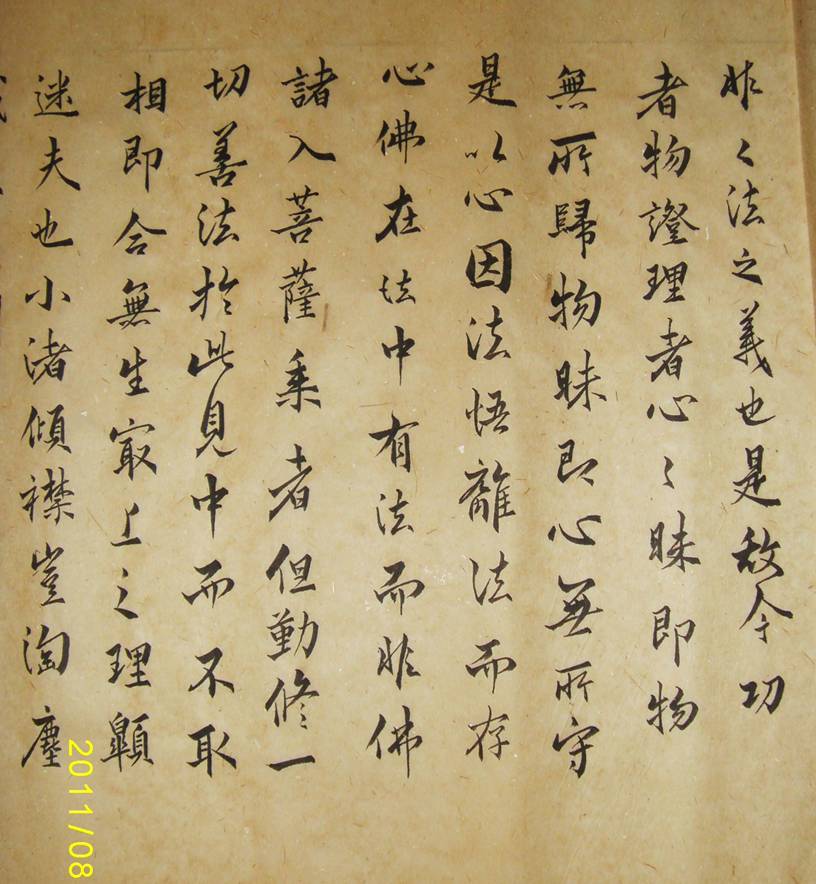 非〻法之義也是故今功
者物證理者心〻昧即物
無所歸物昧即心無所守
是以心因法悟離法而存
心佛在法中有法而非佛
諸入菩薩乘者但勤修一
切善法於此見中而不取
相即合無生最上之理顯
迷夫也小渚傾襟豈淘塵
2011/08